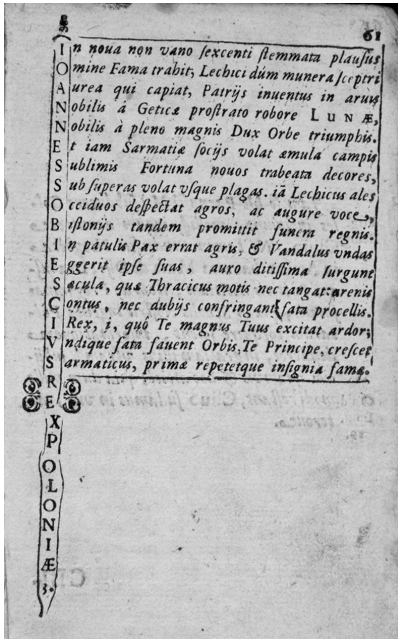 61
In noua non vano ſexcenti ſtemmata plauſus
Omine Fama trahit; Lechici dum munera ſceptri
Aurea qui capiat, Patrijs inuentus in aruis
Nobilis á Geticæ proſtrato robore LUNÆ,
Nobilis à pleno magnis Dux Orbe triumphis.
Et iam Sarmatiæ ſocijs volat æmula campis
Sublimis Fortuna nouos trabeata decores,
Sub ſuperas volat vſque plagas. iã Lechicus ales
Occiduos deſpectat agros, ac augure voce,
Biſtonijs tandem promittit funera regnis.
In patulis Pax errat agris, & Vandalus vndas
Eggerit ipſe ſuas, auro ditiſſima ſurgunt
Sæcula, quæ Thracicus motis nec tangat arenis
Contus, nec dubijs confringant fata procellis.
I Rex, i, quó Te magnus Tuus excitat ardor;
Vndique fata fauent Orbis, Te Principe, creſcet,
Sarmaticus, primæ repetetque inſignia famæ.
R
E
X
P
O
L
O
N
I
Æ